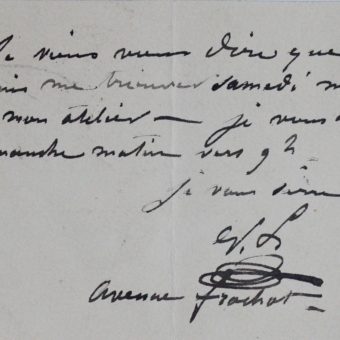 Je viens vous dire que
me trouver samedi m
mon atelier — je vous
manche matin vers 9h
je vous serre
Avenue frochot